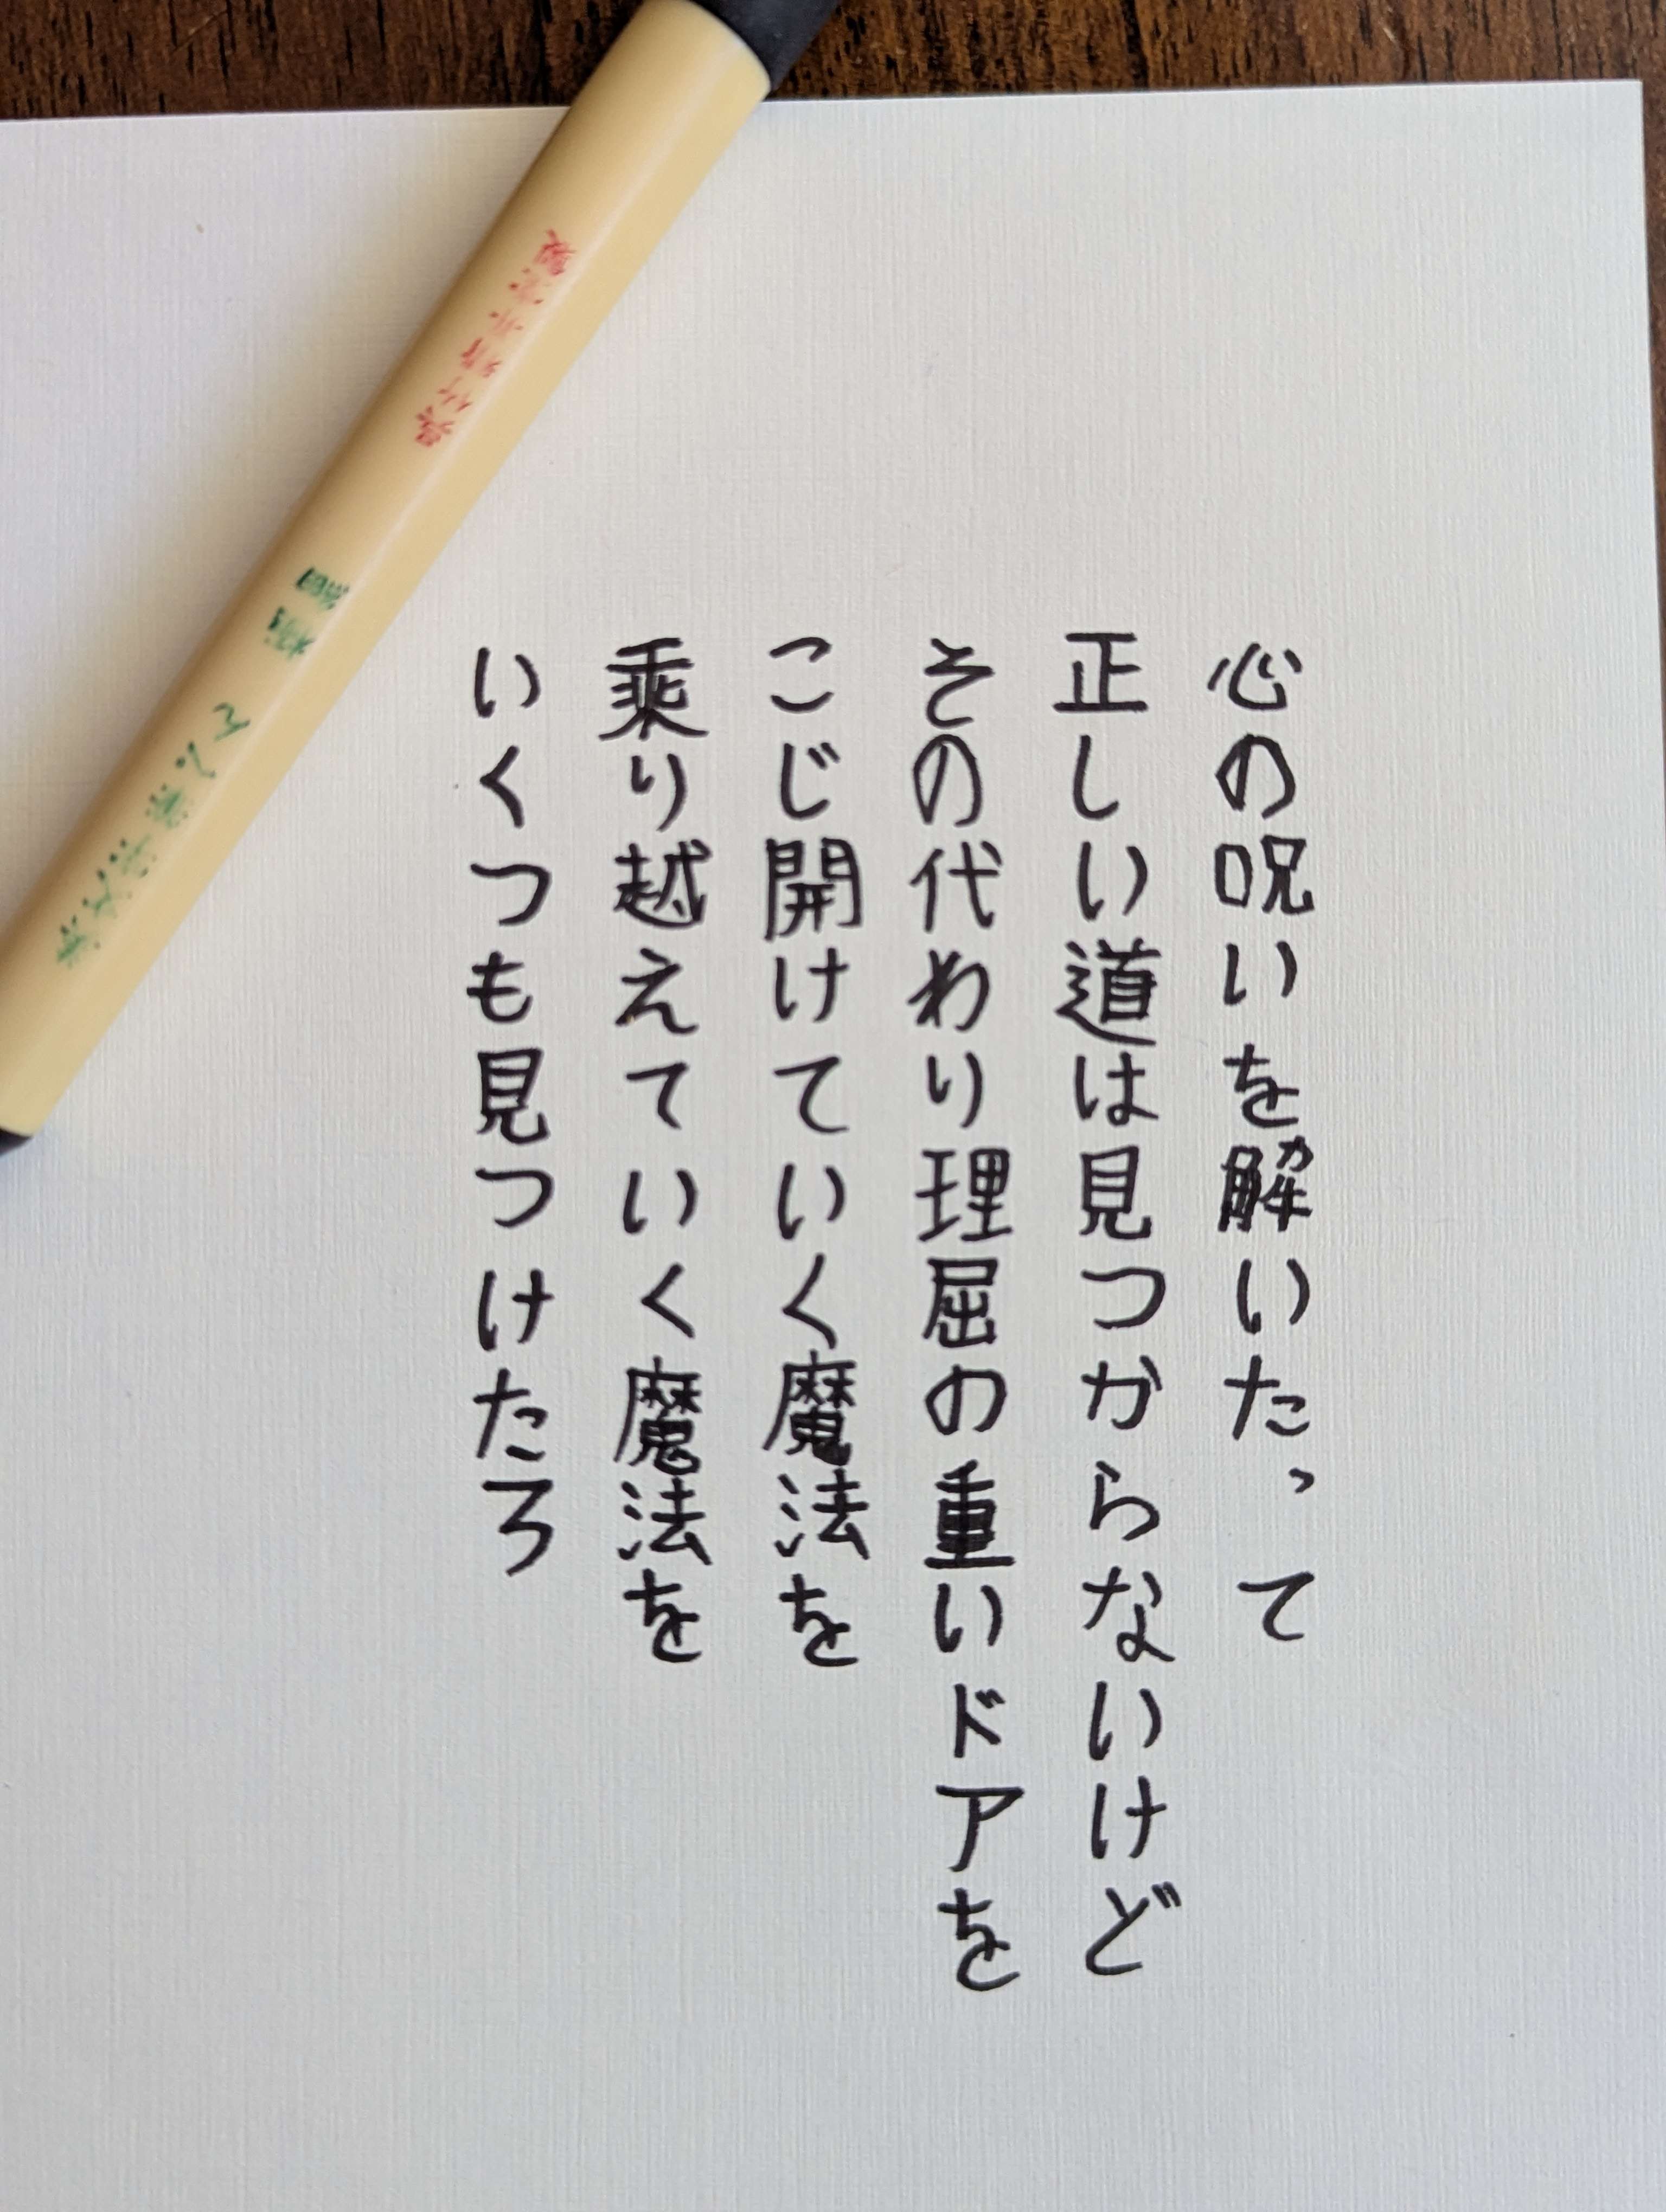 心の呪いを解いたって
正しい道は見つからないけど
その代わり理屈の重いドアを
こじ開けていく魔法を
乗り越えていく魔法を
いくつも見つけたろ